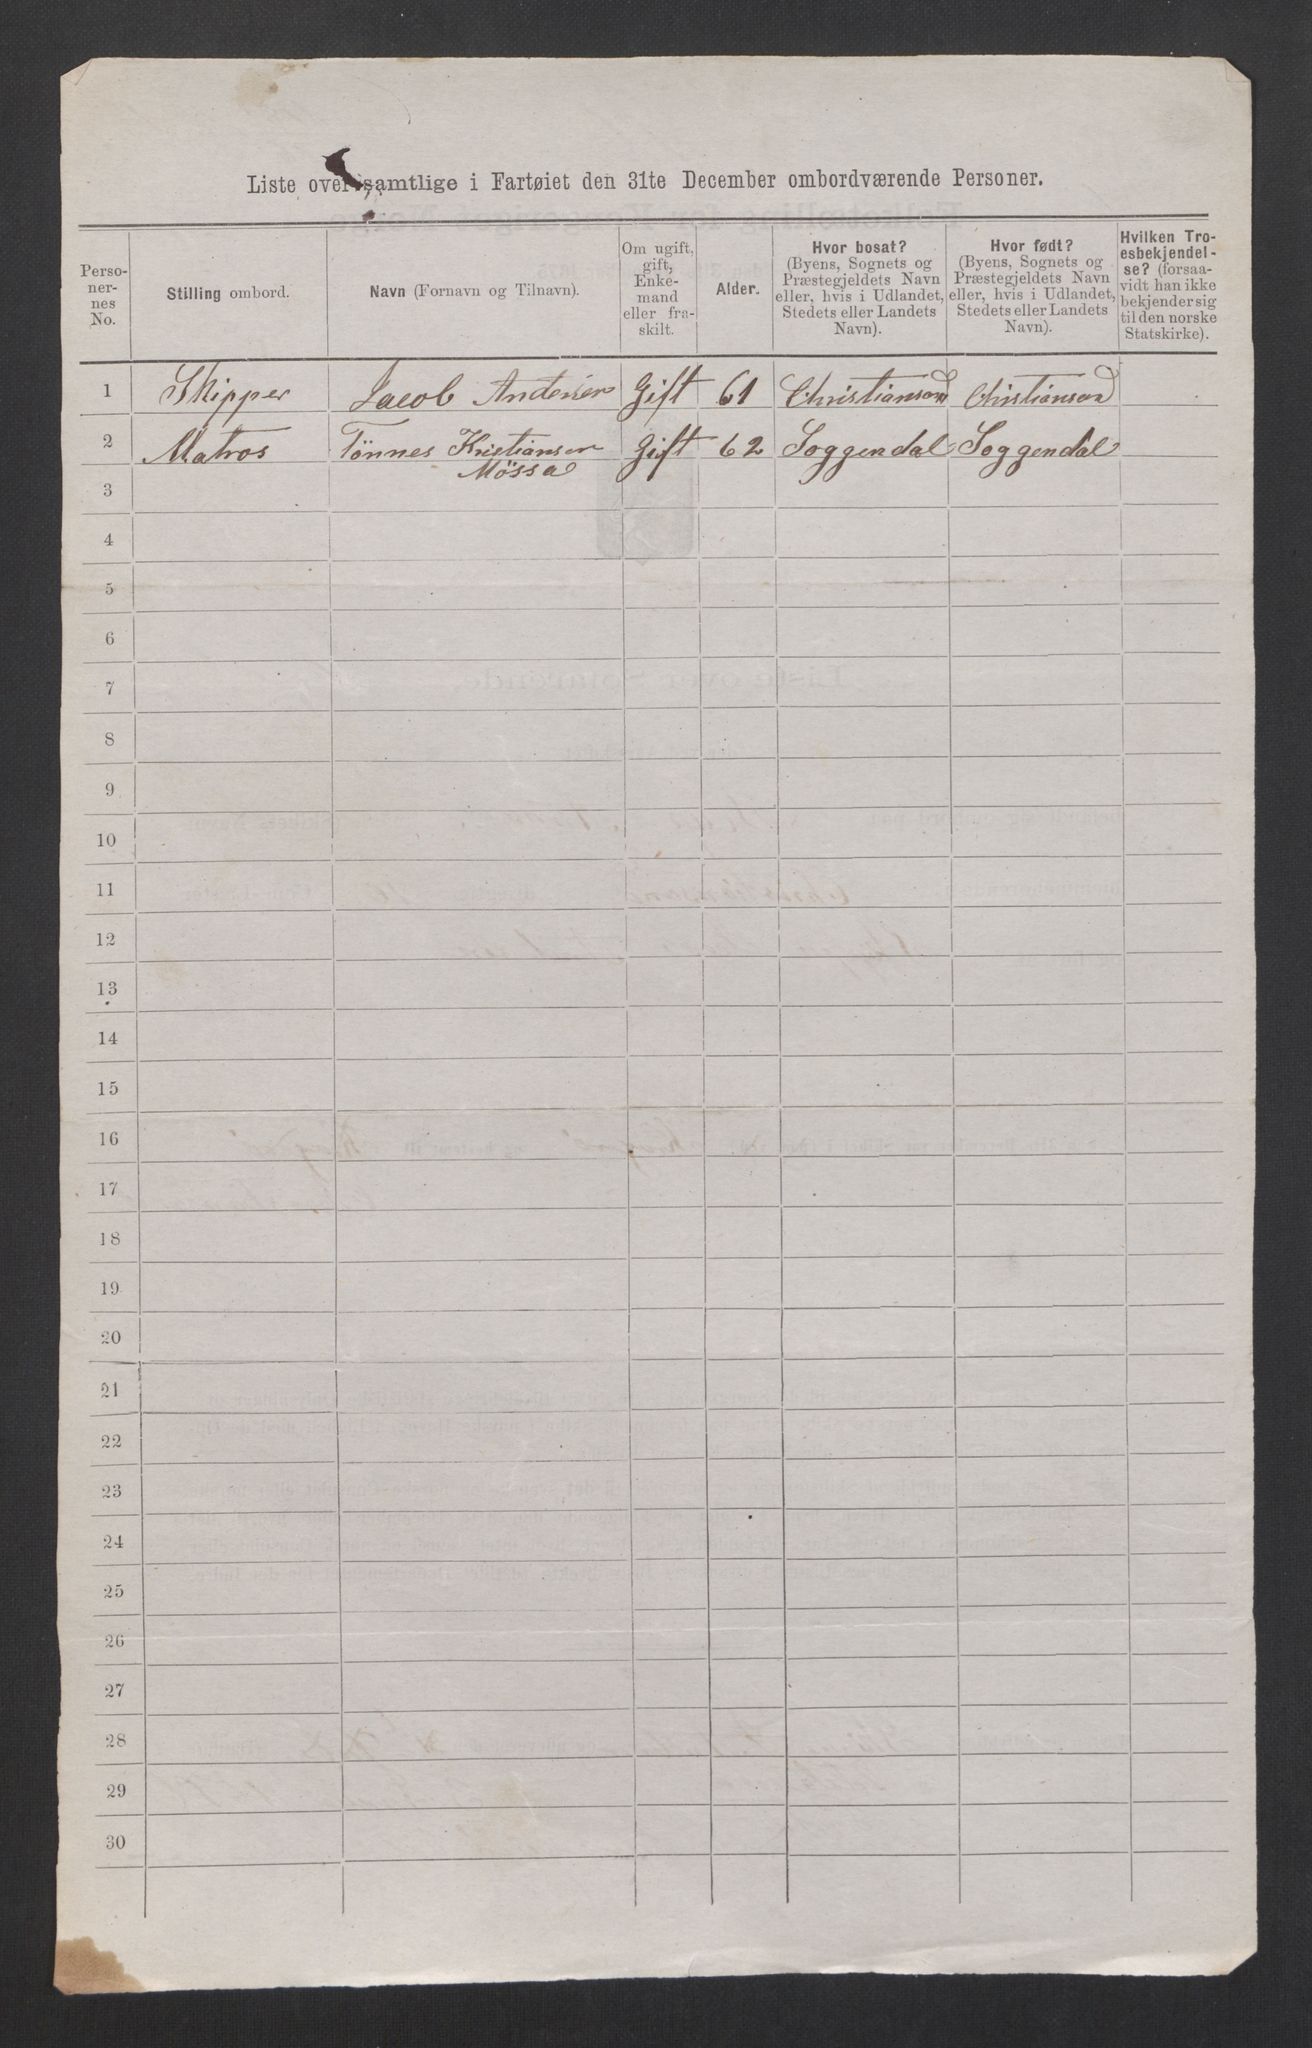 Liste over samtlige i Fartøiet den 31te December ombordværende Personer.
Perso-
ner-
nes
No.
Stilling ombord.
Navn (Fornavn og Tilnavn).
Om ugift,
gift,
Enke-
mand
eller fra-
skilt.
Alder.
Hvor bosat?
(Byens, Sognets og
Præstegjeldets Navn
eller, hvis i Udlandet,
Stedets eller Landets
Navn).
Hvor født?
(Byens, Sognets og
Præstegjeldets Navn
eller, hvis i Udlandet,
Stedets eller Landets
Navn).
Hvilken Tro-
esbekjendel-
se? (forsaa-
vidt han ikke
bekjender sig
til den norske
Statskirke).
1 Skipper Jacob Andersen Gift 61 Christiansand Christiansand
2 Matros Tönnes Kristiansen Gift 62 Soggendal Soggendal
Mössa
3
4
5
6
7
8
9
10
11
12
13
14
15
16
17
18
19
20
21
22
23
24
25
26
27
28
29
30